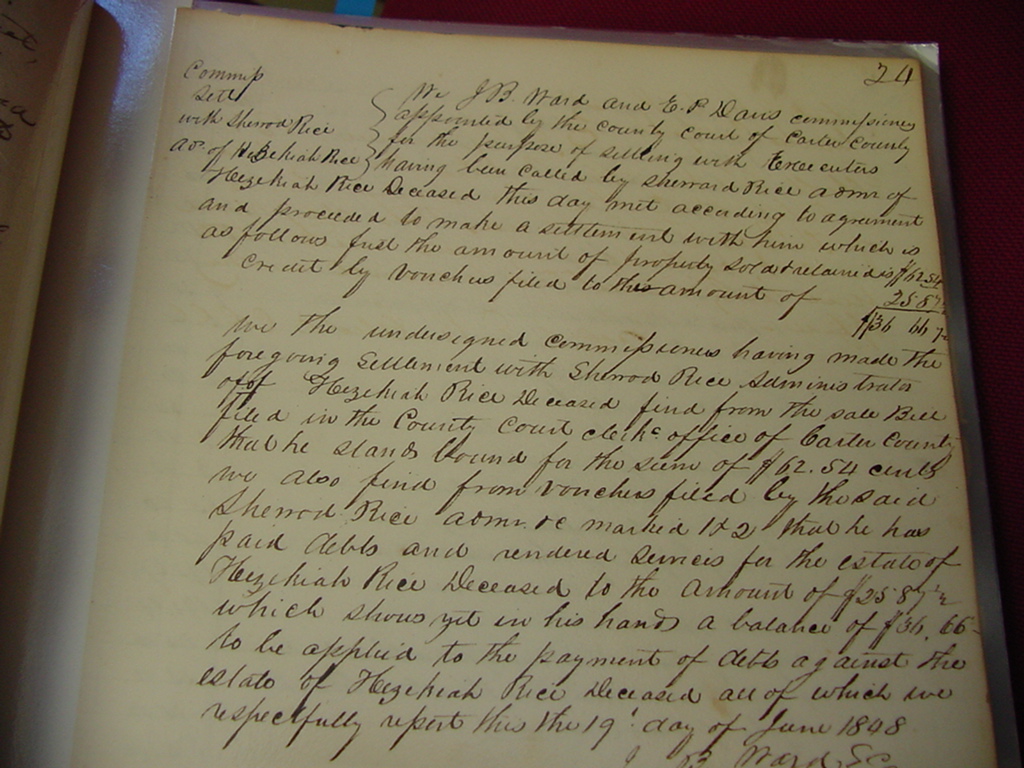 24
Commrs
with Sherrod Rice
We J B Ward and E P Davis commissioners
appointed by the County Court of Carter County
for the purpose of settling with Executors
Having been called by Sherrod Rice admr of
Hezekiah Rice deceased this day met according to agreement
and proceed to make a settlement with him which is
as follows find the amount of property
Credit by vouchers filed to the amount of
We the undersigned commissioners having made the
foregoing settlement with Sherrod Rice administrator
of Hezekiah Rice deceased find from the sale Bill
filed in the County Court clerks office of Carter County
that he stands bound for the sum of $62.54 cents
we also find from vouchers filed by the said
Sherrod Rice admr marked 1 & 2 that he has
paid debts and rendered servis for the estate of
Hezekiah Rice deceased to the amount of $25 87½
which shows yet in his hands a balance of $36.66
to be applied to the payment of debts against the
estate of Hezekiah Rice deceased all of which we
respectfully report this the 19 day of June 1848